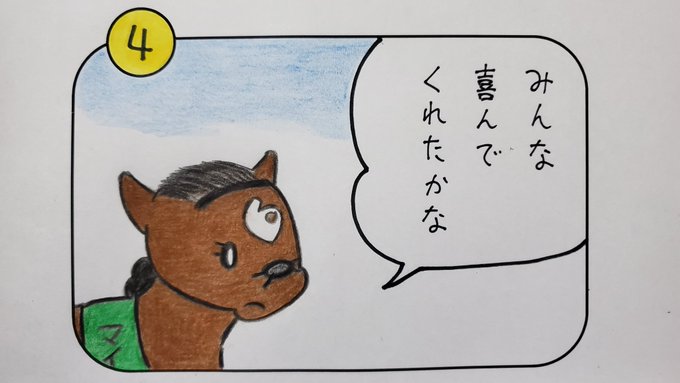 4
みんな
喜んで
くれたかな
マイ